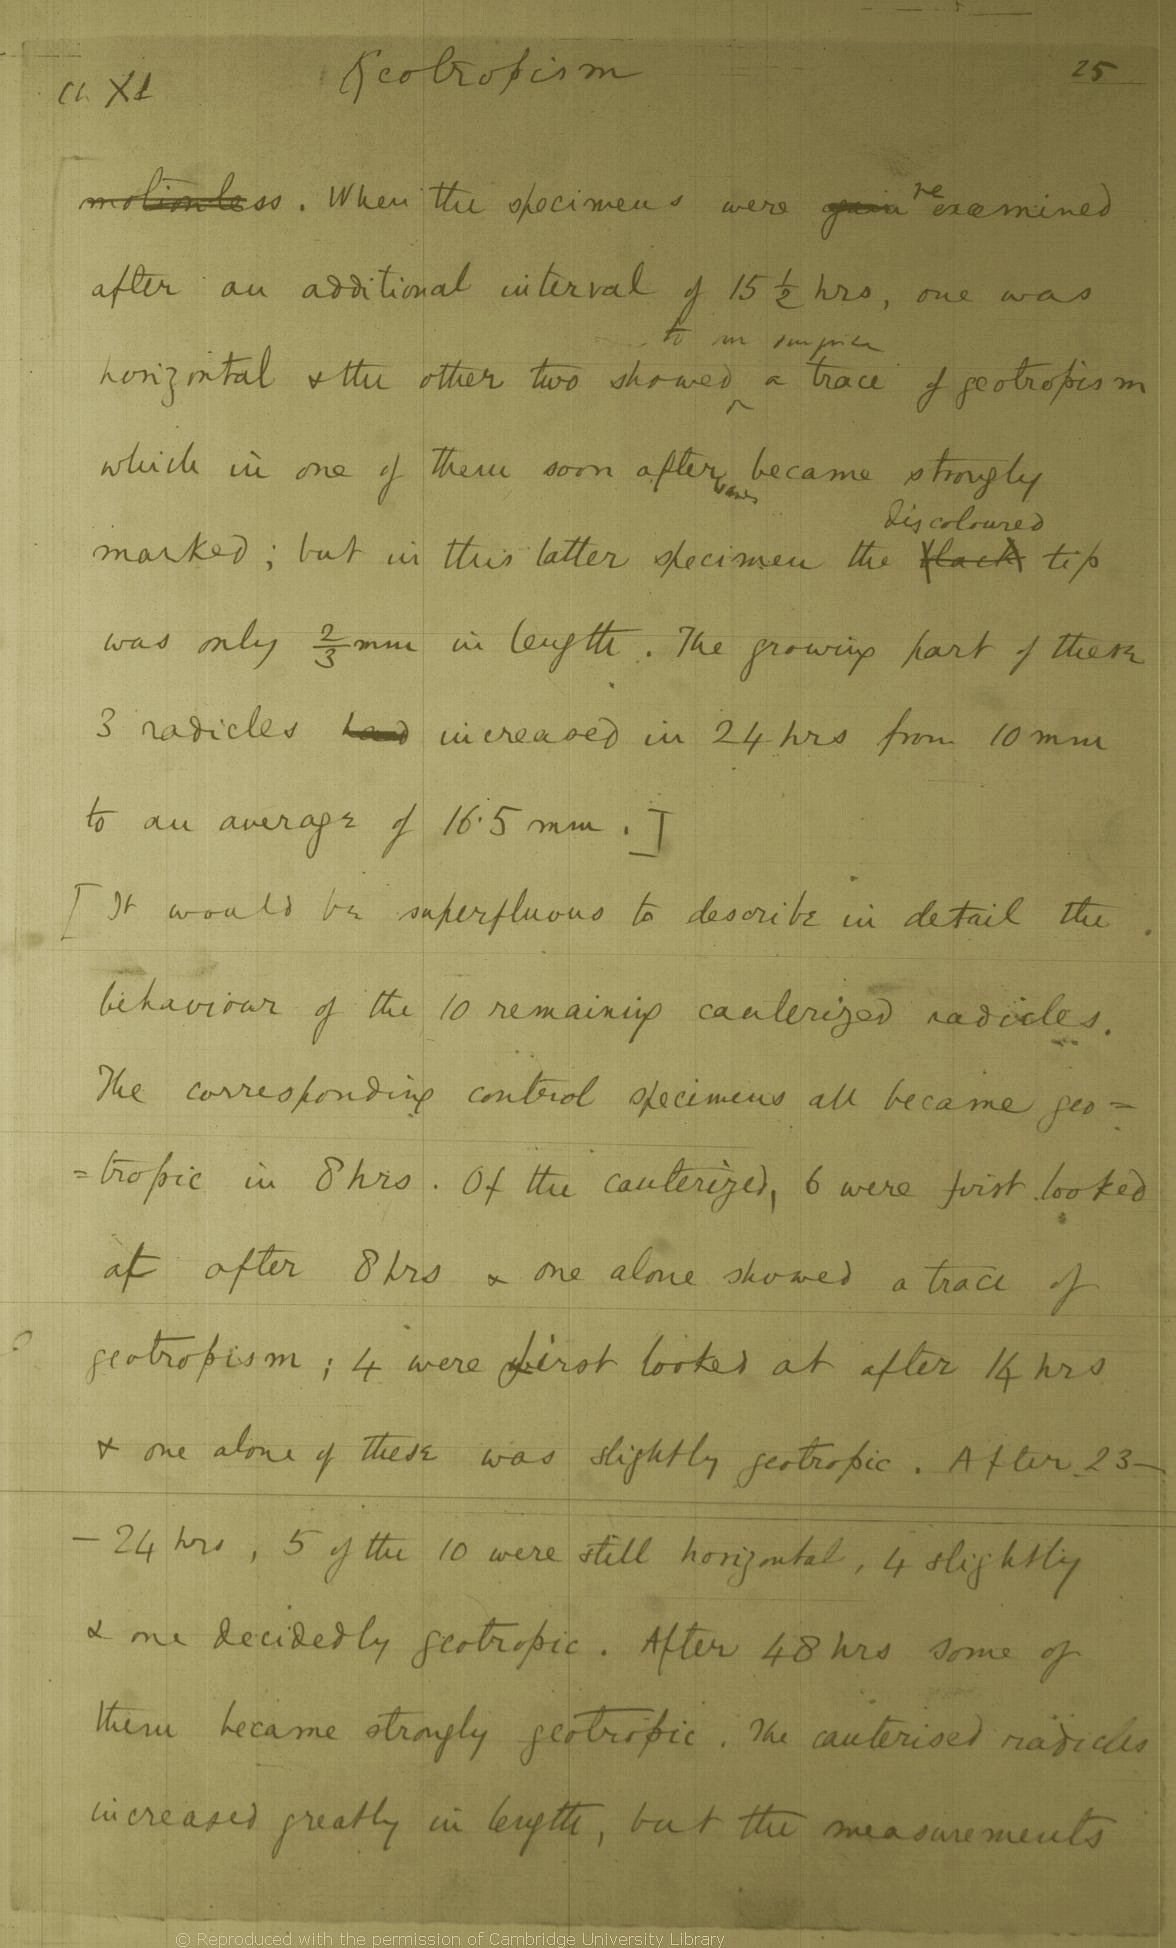 Ch XI Geotropism 25
motionless. When the specimens were again re examined
after an additional interval of 15 1/2 hrs, one was
to our surprise
horizontal & the other two showed a trace of geotropism
which in one of them soon after became strongly
discoloured
marked; but in this latter specimen the black tip
was only 2/3 mm in length. The growing part of these
3 radicles had increased in 24 hrs from 10 mm
to an average of 16·5 mm.]
[It would be superfluous to describe in detail the
behaviour of the 10 remaining cauterized radicles.
The corresponding control specimens all became geo=
=tropic in 8 hrs. Of the cauterized, 6 were first looked
at after 8 hrs & one alone showed a trace of
geotropism; 4 were first looked at after 14 hrs
& one alone of these was slightly geotropic. After 23—
—24 hrs, 5 of the 10 were still horizontal, 4 slightly
& one decidedly geotropic. After 48 hrs some of
them became strongly geotropic. The cauterised radicles
increased greatly in length, but the measurements
© Reproduced with the permission of Cambridge University Library